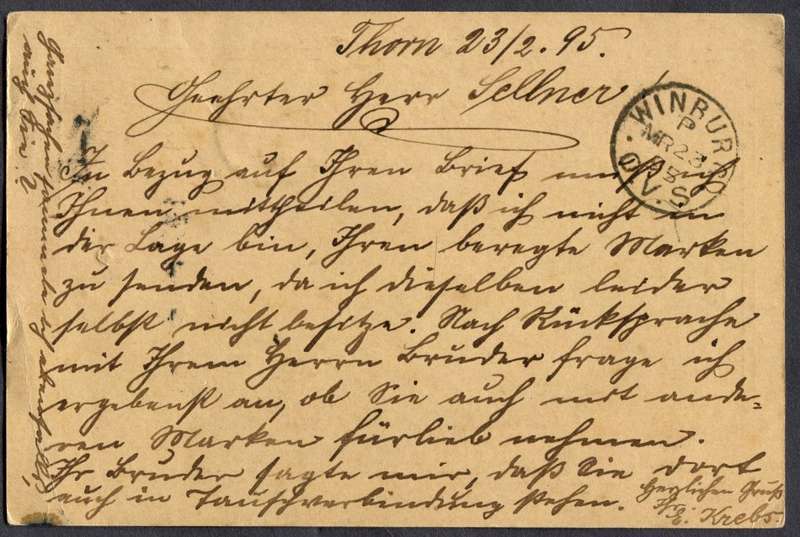 Thorn 23/2.95.
Geehrter Herr Sellner!
In Bezug auf Ihren Brief muß ich
Ihnen mittheilen, daß ich nicht in
der Lage bin, Ihren beregte Marken
zu senden, da ich dieselben leider
selbst nicht besitze. Nach Rücksprache
mit Ihrem Herrn Bruder frage ich
ergebenst an, ob Sie auch mit ande-
ren Marken fürlieb nehmen.
Ihr Bruder sagte mir, daß Sie dort
auch in Tauschverbindung stehen.
Herzlichen Gruß
E. Krebs.
Ganzsachen sammele ich ebenfalls,
auch Sie?
WINBURG
P
MR 23
95
O.V.S.